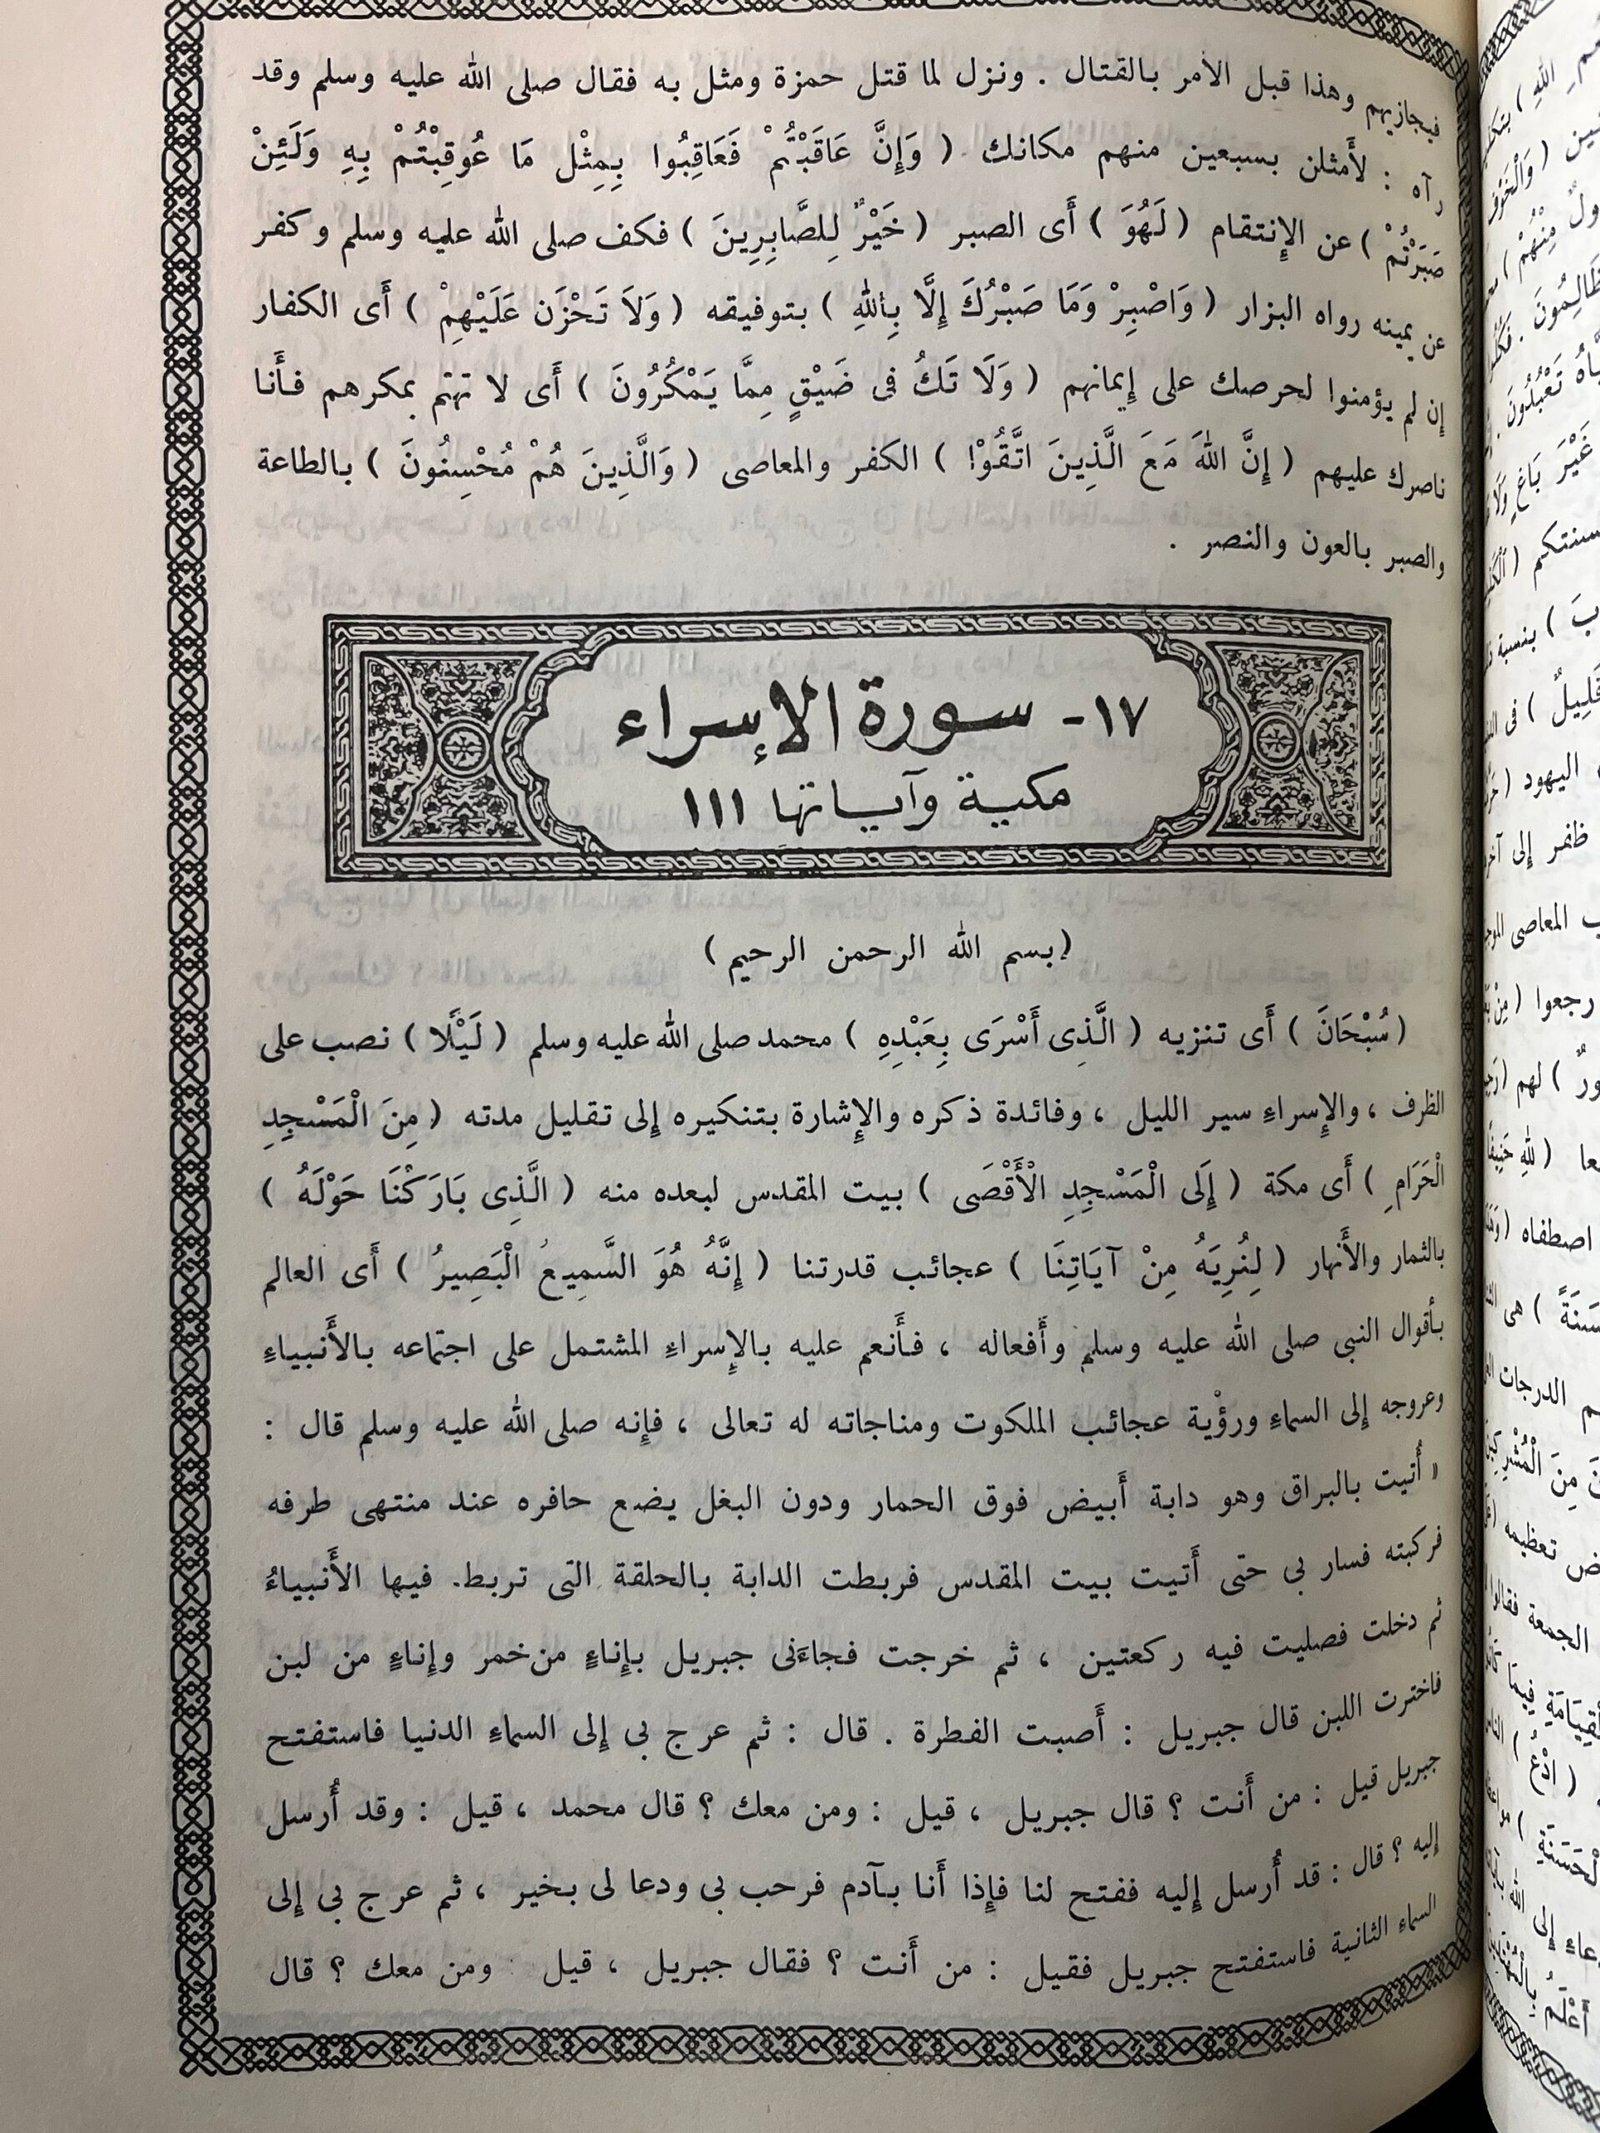 فيجازيهم وهذا قبل الأمر بالقتال . ونزل لما قتل حمزة ومثل به فقال صلى الله عليه وسلم وقد
رآه : لأَمثلن بسبعين منهم مكانك ( وَإِنَّ عَاقَبْتُمْ فَعَاقِبُوا بِمِثْلِ مَا عُوقِبْتُمْ بِهِ وَلَئِنْ
صَبَرْتُمْ ) عن الإِنتقام ( لَهُوَ ) أَى الصبر ( خَيْرٌ لِلصَّابِرِينَ ) فكف صلى الله عليه وسلم وكفر
عن يمينه رواه البزار ( وَاصْبِرْ وَمَا صَبْرُكَ إِلَّا بِاللهِ ) بتوفيقه ( وَلاَ تَحْزَن عَلَيْهِمْ ) أَى الكفار
إِن لم يؤمنوا لحرصك على إِيمانهم ( وَلَا تَكُ فى ضَيْقٍ مِمَّا يَمْكُرُونَ ) أَى لا تهتم بمكرهم فأَنا
ناصرك عليهم ( إِنَّ اللهَ مَعَ الَّذِينَ اتَّقُوْا ) الكفر والمعاصى ( وَالَّذِينَ هُمْ مُحْسِنُونَ ) بالطاعة
والصبر بالعون والنصر .
١٧- سورة الإسراء
مكية وآياتها ١١١
(بسم الله الرحمن الرحيم)
( سُبْحَانَ ) أَى تنزيه ( الَّذِى أَسْرَى بِعَبْدِهِ ) محمد صلى الله عليه وسلم ( لَيْلًا ) نصب على
الظرف ، والإِسراءِ سير الليل ، وفائدة ذكره والإِشارة بتنكيره إِلى تقليل مدته ( مِنَ الْمَسْجِدِ
الْحَرَامِ ) أَى مكة ( إِلَى الْمَسْجِدِ الْأَقْصَى ) بيت المقدس لبعده منه ( الَّذِى بَارَكْنَا حَوْلَهُ )
بالثمار والأَنهار ( لِنُرِيَهُ مِنْ آيَاتِنَا ) عجائب قدرتنا ( إِنَّهُ هُوَ السَّمِيعُ الْبَصِيرُ ) أَى العالم
بأقوال النبى صلى الله عليه وسلم وأَفعاله ، فأَنعم عليه بالإِسراءِ المشتمل على اجتماعه بالأَنبياءِ
وعروجه إِلى السماءِ ورؤْية عجائب الملكوت ومناجاته له تعالى ، فإِنه صلى الله عليه وسلم قال :
« أُتيت بالبراق وهو دابة أَبيض فوق الحمار ودون البغل يضع حافره عند منتهى طرفه
فركبته فسار بى حتى أَتيت بيت المقدس فربطت الدابة بالحلقة التى تربط. فيها الأَنبياءُ
ثم دخلت فصليت فيه ركعتين ، ثم خرجت فجاءَنى جبريل بإِناءٍ من خمر وإِناءٍ من لبن
فاخترت اللبن قال جبريل : أَصبت الفطرة . قال : ثم عرج بى إِلى السماءِ الدنيا فاستفتح
جبريل قيل : من أَنت ؟ قال جبريل ، قيل : ومن معك ؟ قال محمد ، قيل : وقد أُرسل
إليه ؟ قال : قد أُرسل إِليه ففتح لنا فإِذا أَنا بآدم فرحب بى ودعا لى بخير ، ثم عرج بى إِلى
السماءِ الثانية فاستفتح جبريل فقيل : من أَنت ؟ فقال جبريل ، قيل : ومن معك ؟ قال